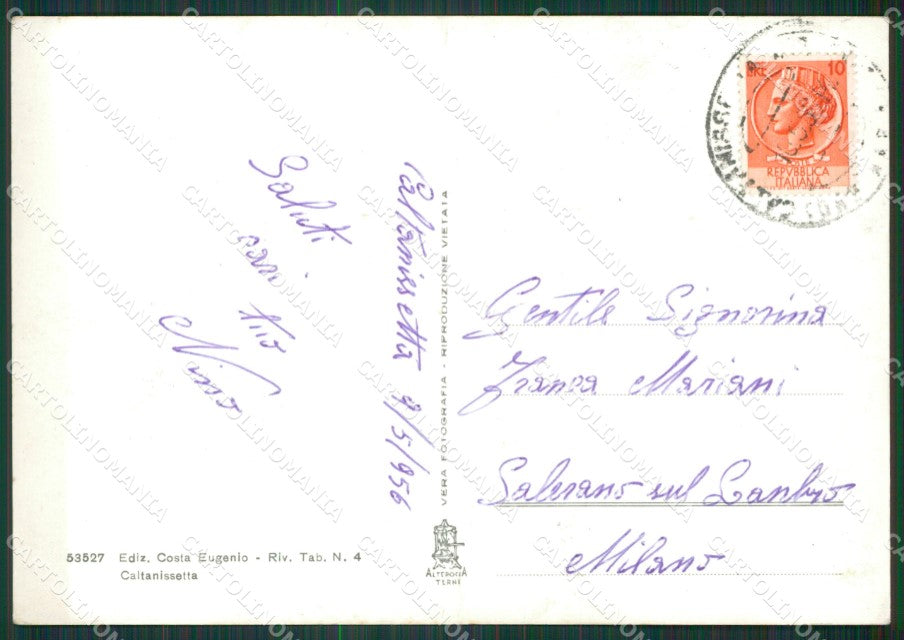 Caltanissetta 9/5/956
Saluti
cari tuo
Nino
Gentile Signorina
Franca Mariani
Salerano sul Lambro
Milano
LIRE 10
REPVBBLICA
ITALIANA
VERA FOTOGRAFIA - RIPRODUZIONE VIETATA
53527 Ediz. Costa Eugenio - Riv. Tab. N. 4
Caltanissetta
ALTEROCCA
TERNI
CARTOLINOMANIA